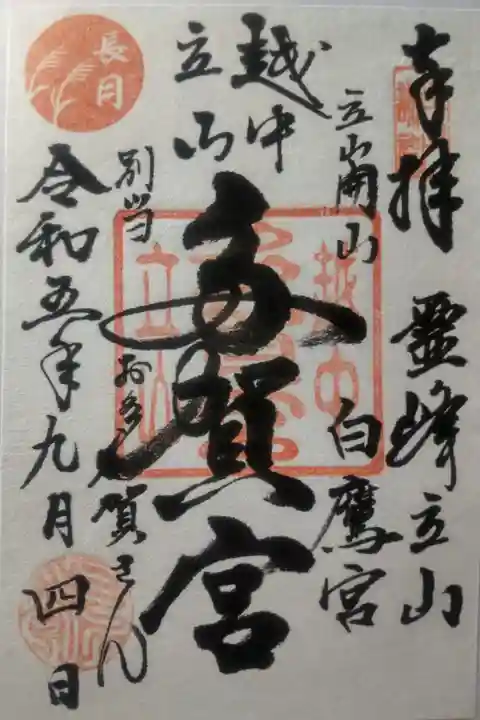 奉拝 靈峰立山
立山開山 白鷹宮
越中
立山
多賀宮
別当 お多賀さん
令和五年九月四日
長月
越中
立山